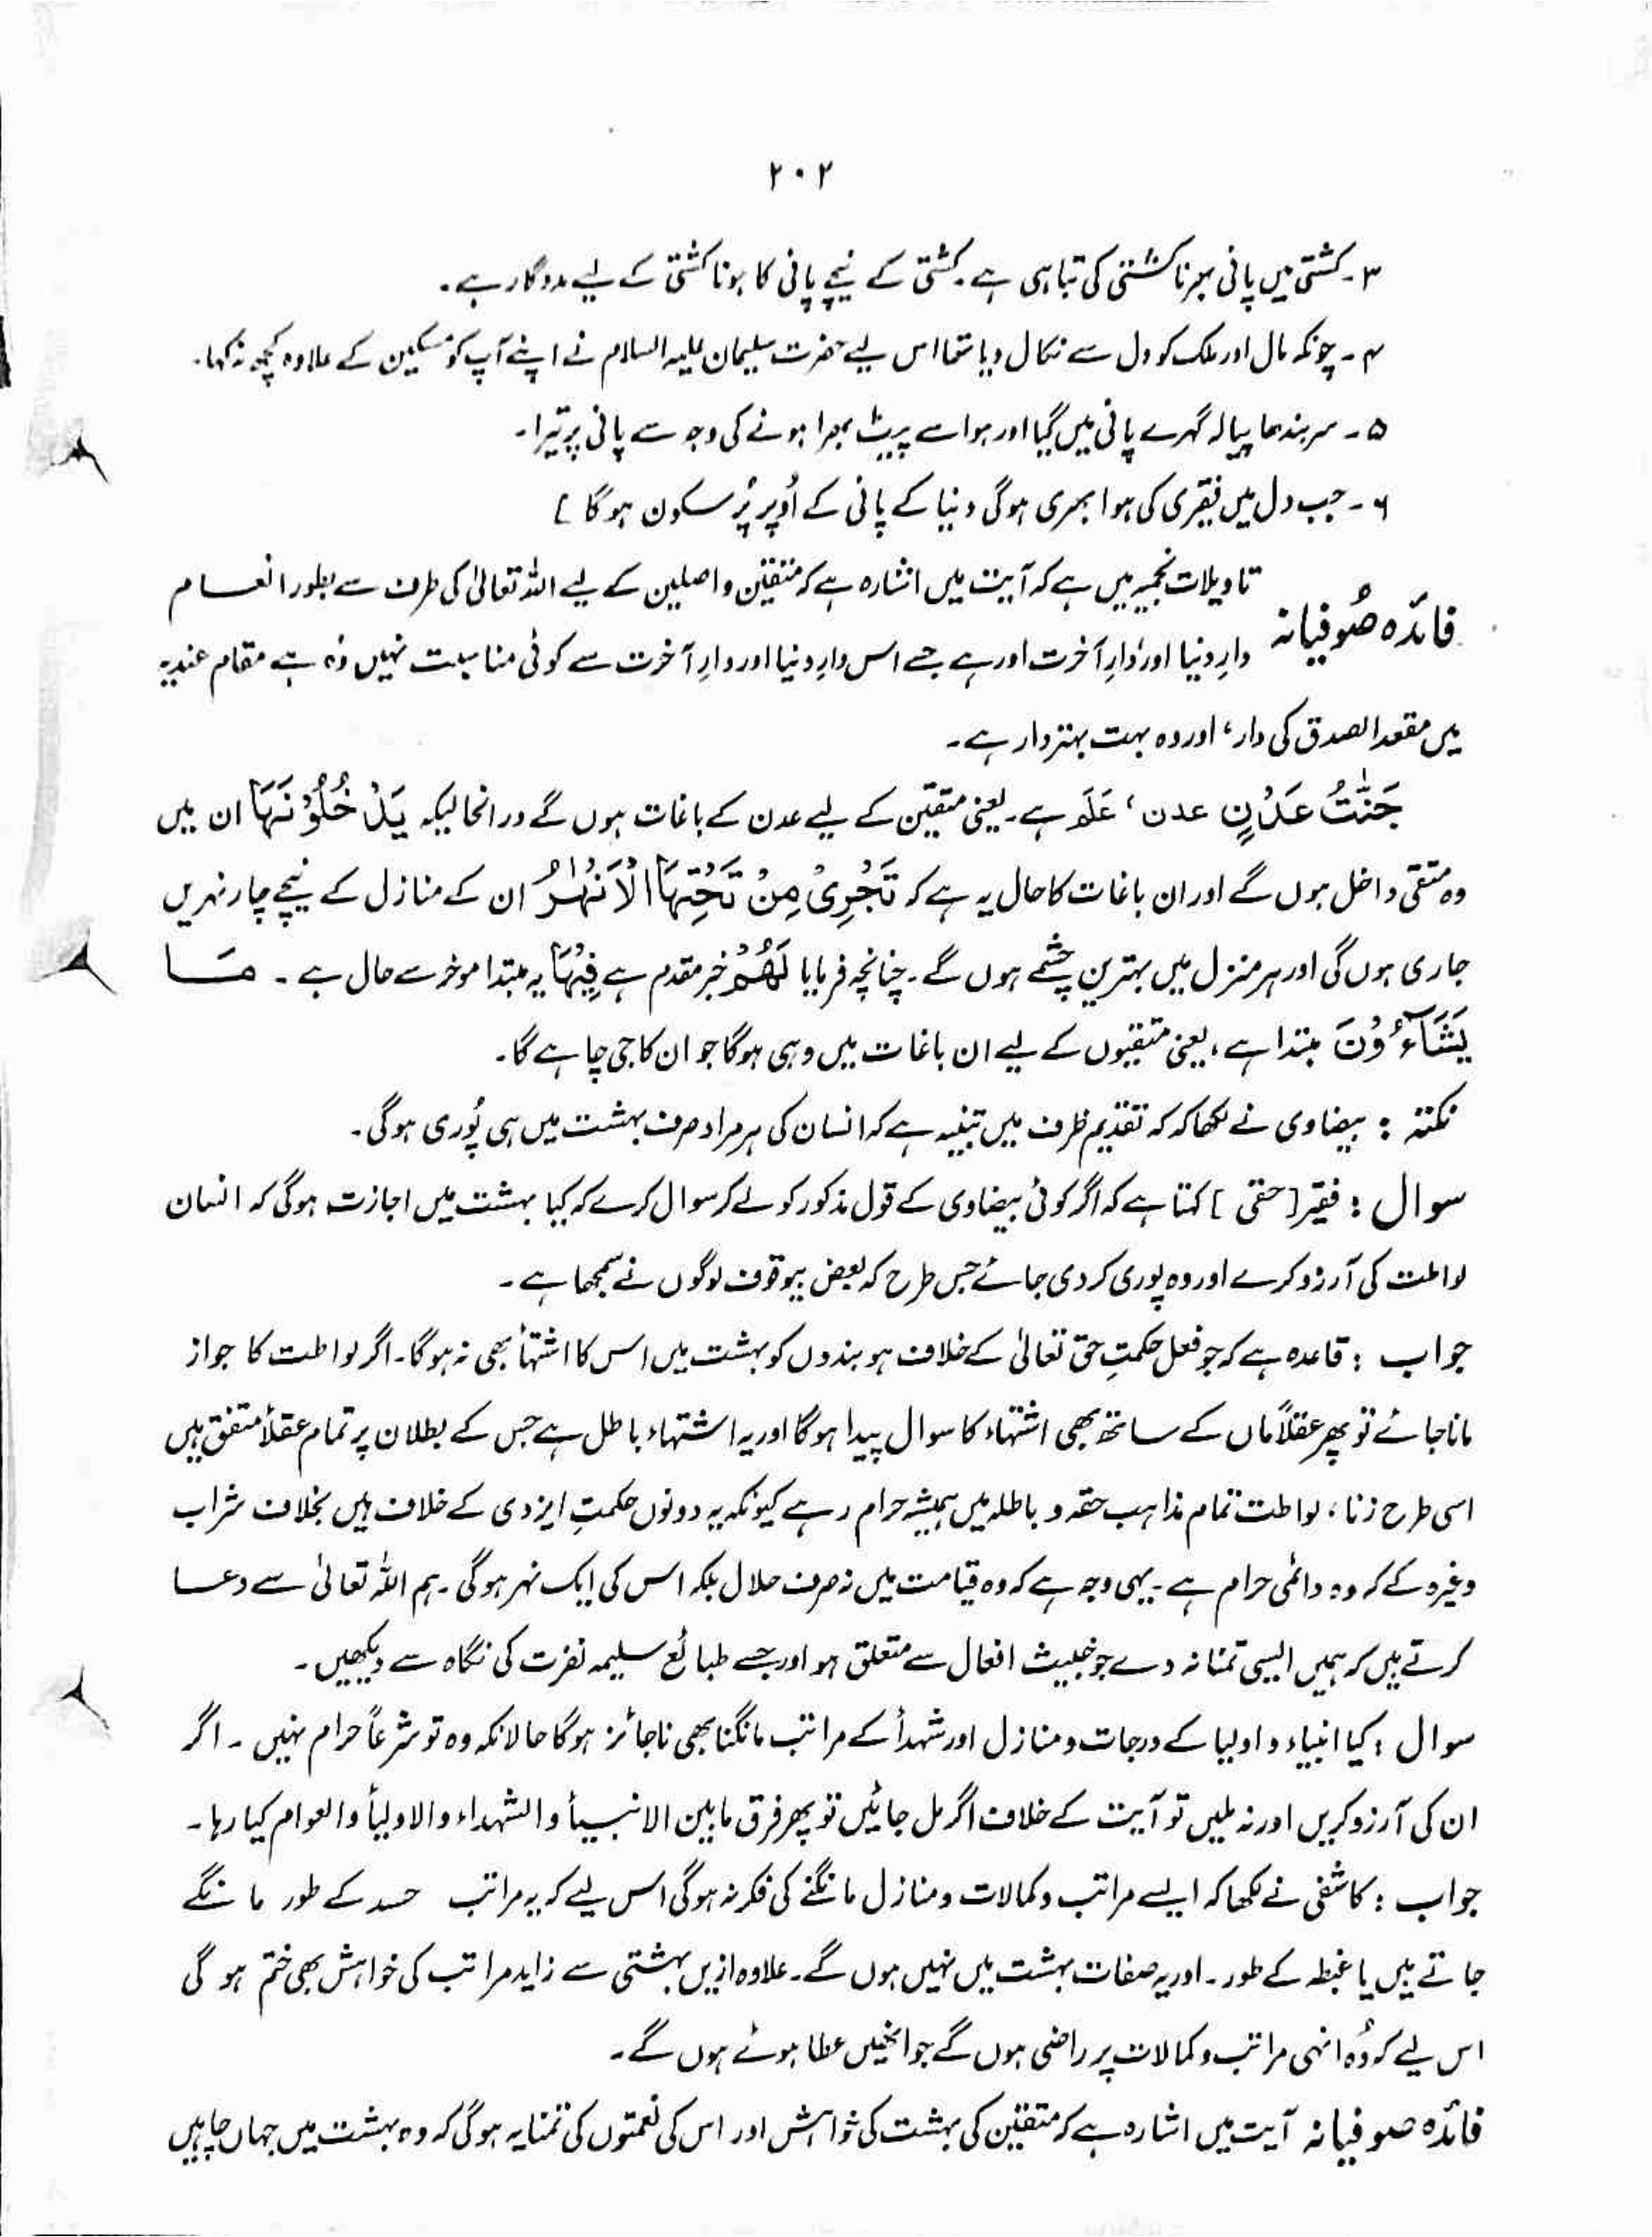 ۲۰۲
۳۔ کشتی میں پانی بھرنا کشتی کی تباہی ہے۔ کشتی کے نیچے پانی کا ہونا کشتی کے لیے مددگار ہے۔
۴۔ چونکہ مال اور ملک کو دل سے نکال دیا تھا اس لیے حضرت سلیمان علیہ السلام نے اپنے آپ کو مسکین کے علاوہ کچھ نہ کہا۔
۵۔ سربندھا پیالہ گہرے پانی میں گیا اور ہوا سے پیٹ بھرا ہونے کی وجہ سے پانی پر تیرا۔
۶۔ جب دل میں فقیری کی ہوا بھری ہوگی دنیا کے پانی کے اُوپر پُر سکون ہو گا ]
تاویلات نجمیہ میں ہے کہ آیت میں اشارہ ہے کہ متقین واصلین کے لیے اللہ تعالیٰ کی طرف سے بطور انعام
فائدہ صُوفیانہ دارِ دنیا اور دارِ آخرت اور ہے جسے اس دارِ دنیا اور دارِ آخرت سے کوئی مناسبت نہیں وُہ ہے مقام عندیہ
میں مقعد الصدق کی دار، اور وہ بہت بہتر دار ہے۔
جَنّٰتُ عَدْنٍ عدن، عَلَم ہے۔ یعنی متقین کے لیے عدن کے باغات ہوں گے درانحالیکہ یَدْخُلُوْنَهَا ان میں
وہ متقی داخل ہوں گے اور ان باغات کا حال یہ ہے کہ تَجْرِیْ مِنْ تَحْتِهَا الْاَنْهٰرُ ان کے منازل کے نیچے چار نہریں
جاری ہوں گی اور ہر منزل میں بہترین چشمے ہوں گے۔ چنانچہ فرمایا لَهُمْ خبر مقدم ہے فِیْهَا یہ مبتدا موخر سے حال ہے۔ مَا
یَشَآءُوْنَ مبتدا ہے، یعنی متقیوں کے لیے ان باغات میں وہی ہوگا جو ان کا جی چاہے گا۔
نکتہ : بیضاوی نے لکھا کہ کہ تقدیم ظرف میں تنبیہ ہے کہ انسان کی ہر مراد صرف بہشت میں ہی پُوری ہوگی۔
سوال : فقیر [حقی] کہتا ہے کہ اگر کوئی بیضاوی کے قول مذکور کو لے کر سوال کرے کہ کیا بہشت میں اجازت ہوگی کہ انسان
لواطت کی آرزو کرے اور وہ پوری کر دی جائے جس طرح کہ بعض بیوقوف لوگوں نے سمجھا ہے۔
جواب : قاعدہ ہے کہ جو فعل حکمتِ حق تعالیٰ کے خلاف ہو بندوں کو بہشت میں اس کا اشتہأ بھی نہ ہوگا۔ اگر لواطت کا جواز
مانا جائے تو پھر عقلاً ماں کے ساتھ بھی اشتہاء کا سوال پیدا ہوگا اور یہ اشتہاء باطل ہے جس کے بطلان پر تمام عقلأ متفق ہیں
اسی طرح زنا، لواطت تمام مذاہب حقہ و باطلہ میں ہمیشہ حرام رہے کیونکہ یہ دونوں حکمتِ ایزدی کے خلاف ہیں بخلاف شراب
وغیرہ کے کہ وہ دائمی حرام ہے۔ یہی وجہ ہے کہ وہ قیامت میں نہ صرف حلال بلکہ اس کی ایک نہر ہوگی۔ ہم اللہ تعالیٰ سے دعا
کرتے ہیں کہ ہمیں ایسی تمنا نہ دے جو خبیث افعال سے متعلق ہو اور جسے طبائع سلیمہ نفرت کی نگاہ سے دیکھیں۔
سوال : کیا انبیاء و اولیا کے درجات و منازل اور شہدأ کے مراتب مانگنا بھی ناجائز ہوگا حالانکہ وہ تو شرعاً حرام نہیں۔ اگر
ان کی آرزو کریں اور نہ ملیں تو آیت کے خلاف اگر مل جائیں تو پھر فرق مابین الانبیأ و الشہداء والاولیأ والعوام کیا رہا۔
جواب : کاشفی نے لکھا کہ ایسے مراتب و کمالات و منازل مانگنے کی فکر نہ ہوگی اس لیے کہ یہ مراتب حسد کے طور مانگے
جاتے ہیں یا غبطہ کے طور۔ اور یہ صفات بہشت میں نہیں ہوں گے۔ علاوہ ازیں بہشتی سے زاید مراتب کی خواہش بھی ختم ہو گی
اس لیے کہ وُہ انہی مراتب و کمالات پر راضی ہوں گے جو انھیں عطا ہوئے ہوں گے۔
فائدہ صوفیانہ آیت میں اشارہ ہے کہ متقین کی بہشت کی خواہش اور اس کی نعمتوں کی تمنا یہ ہوگی کہ وہ بہشت میں جہاں چاہیں